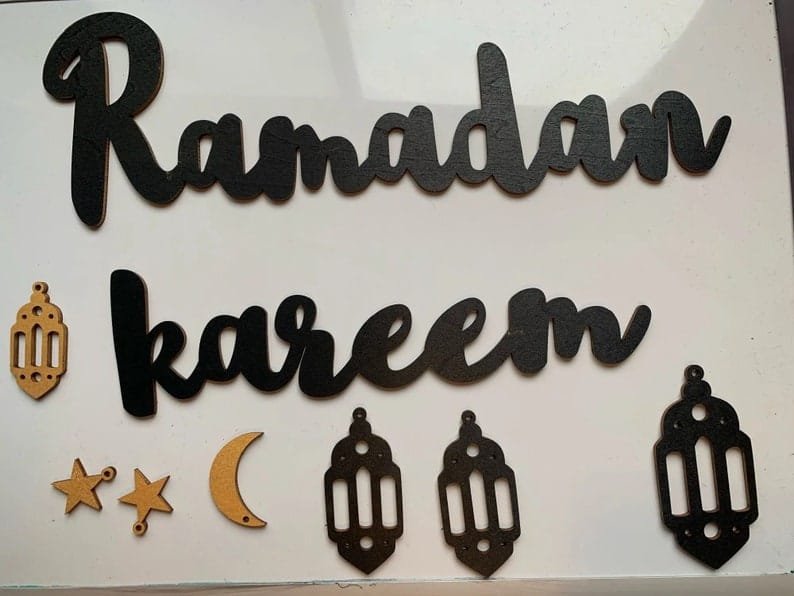 Ramadan
kareem